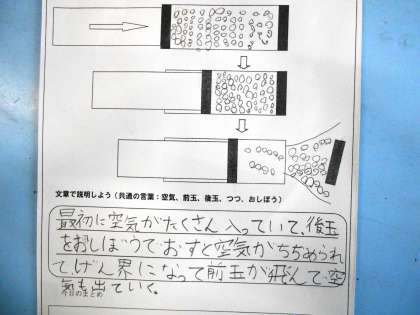 文章で説明しよう（共通の言葉：空気、前玉、後玉、つつ、おしぼう）
最初に空気がたくさん入っていて、後玉
をおしぼうでおすと空気がちぢめられ
て、げん界になって前玉が飛んで空
気も出ていく。
今日のまとめ